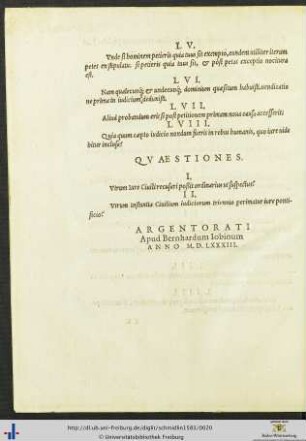 L V.
Vnde si hominem petieris quia tuus sit ex empto, eundem utiliter iterum
petes ex stipulatu: si petieris quia tuus sit, & post petas exceptio nocitura
est.
L V I.
Nam qualecunq; & undecunq; dominium quæsitum habuisti, uendicatio
ne prima in iudicium deduxisti.
L V I I.
Aliud probandum erit si post petitionem primam noua causa accesserit:
L V I I I.
Quia quum capto iudicio nondum fuerit in rebus humanis, quo iure uide
bitur inclusa?
QVAESTIONES.
I.
Vtrum Iure Ciuili recusari possit ordinarius ut suspectus?
I I.
Vtrum instantia Ciuilium Iudiciorum triennio perimatur iure ponti-
ficio?
ARGENTORATI
Apud Bernhardum Iobinum
ANNO M.D.LXXXIII.
http://dl.ub.uni-freiburg.de/diglit/schmidlin1583/0020
© Universitätsbibliothek Freiburg
Baden-Württemberg